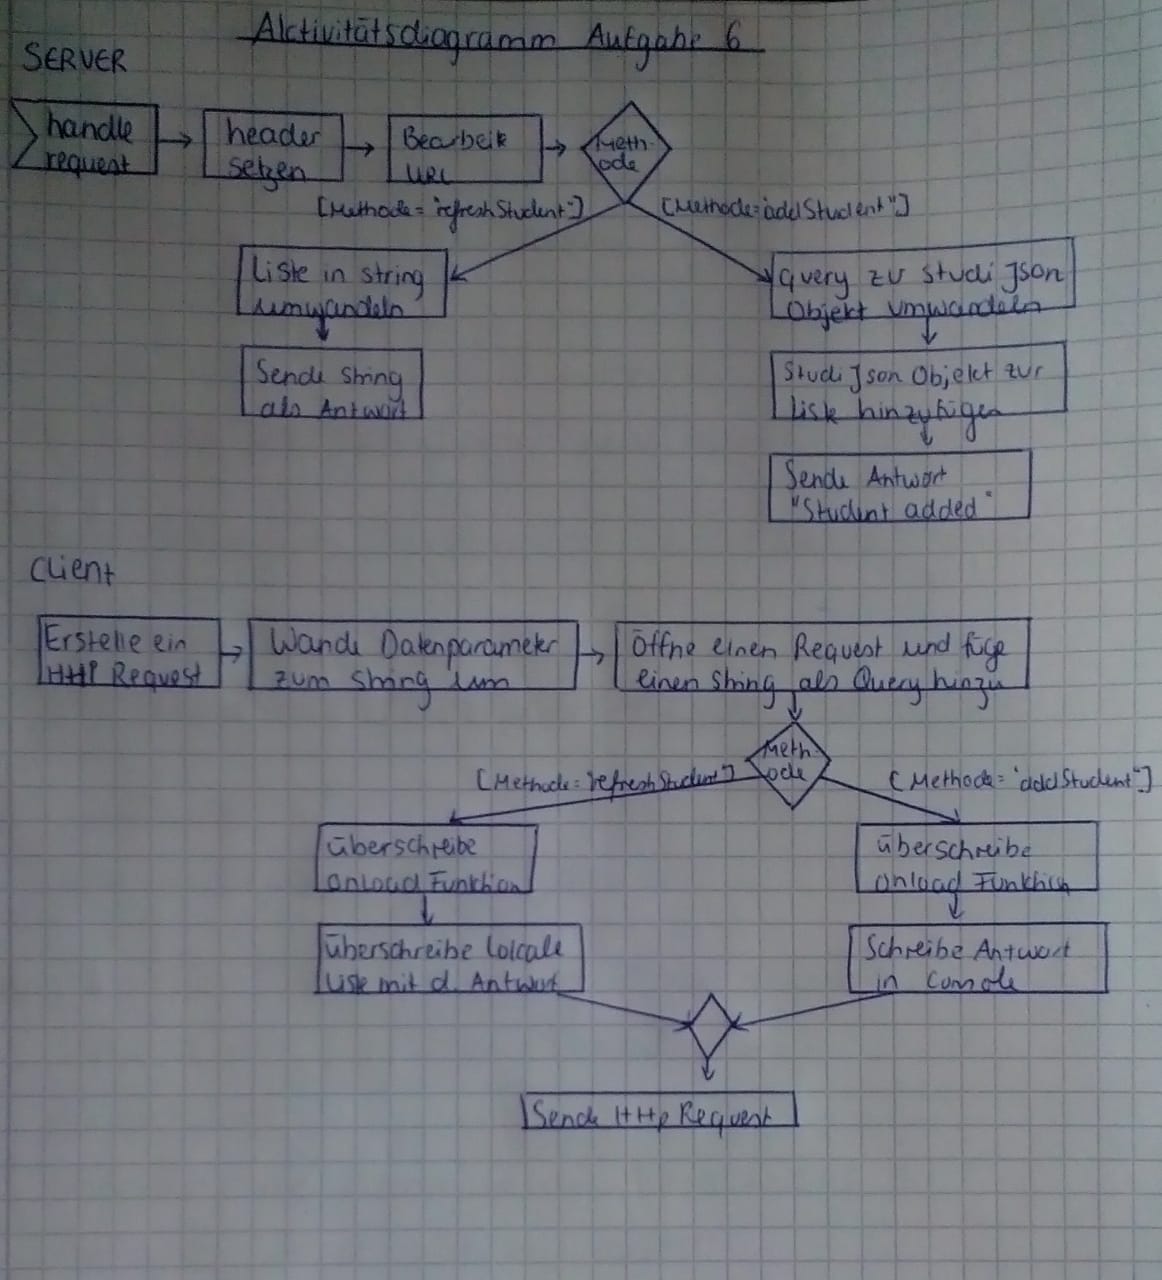 Aktivitätsdiagramm Aufgabe 6
SERVER
handle
request
header
setzen
Bearbeite
URL
Meth-
ode
[Methode="refreshStudent"]
[Methode="addStudent"]
Liste in string
umwandeln
Sende String
als Antwort
Query zu Studi Json
Objekt umwandeln
Studi Json Objekt zur
Liste hinzufügen
Sende Antwort
"Student added"
Client
Erstelle ein
Http Request
Wandle Datenparameter
zum String um
Öffne einen Request und füge
einen String als Query hinzu
Meth-
ode
[Methode="refreshStudent"]
[Methode="addStudent"]
überschreibe
Onload Funktion
überschreibe
Onload Funktion
überschreibe lokale
Liste mit d. Antwort
Schreibe Antwort
in Console
Sende Http Request